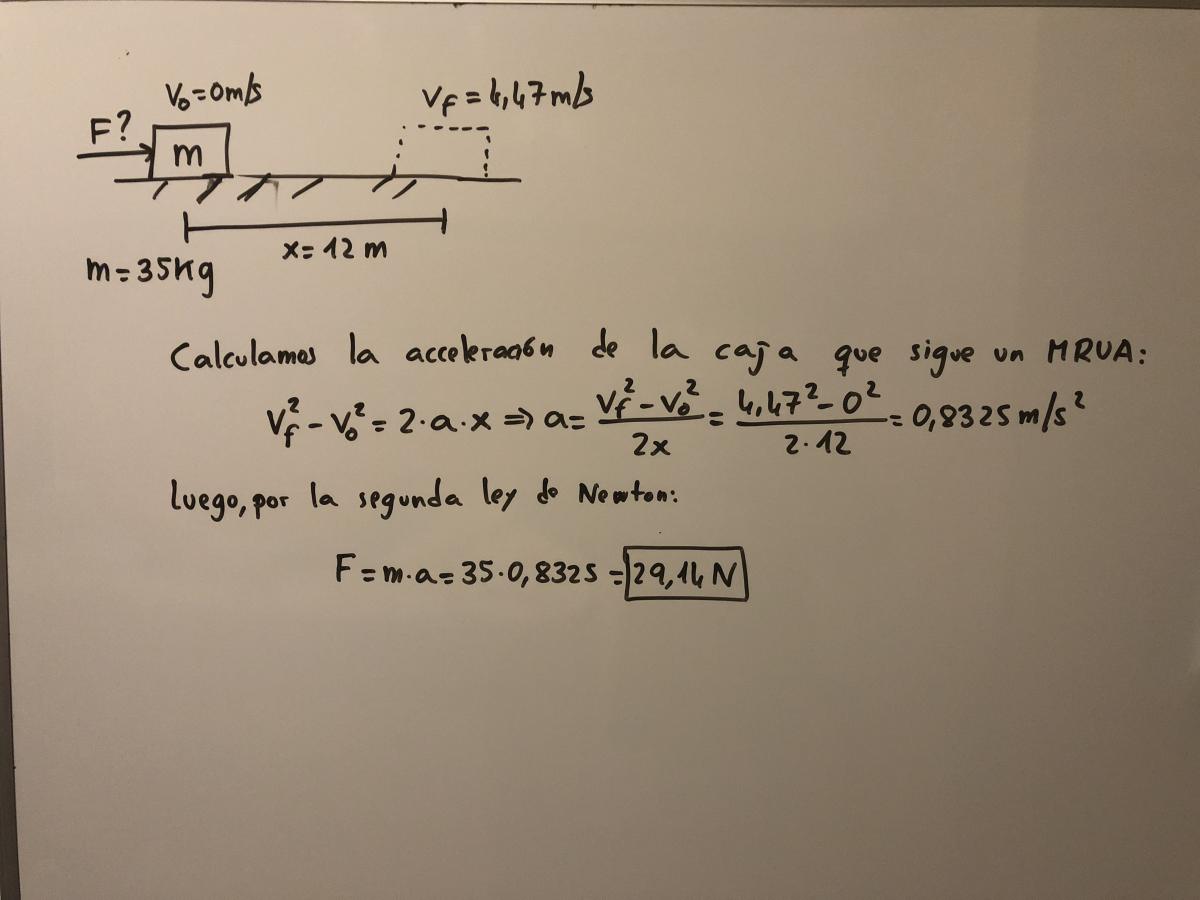 V₀=0m/s
V_f=4,47m/s
F?
m
x=12 m
m=35Kg
Calculamos la acceleración de la caja que sigue un MRUA:
V_f²-V₀²=2·a·x⇒a=(V_f²-V₀²)/2x=(4,47²-0²)/2·12=0,8325m/s²
Luego, por la segunda ley de Newton:
F=m·a=35·0,8325=29,14N